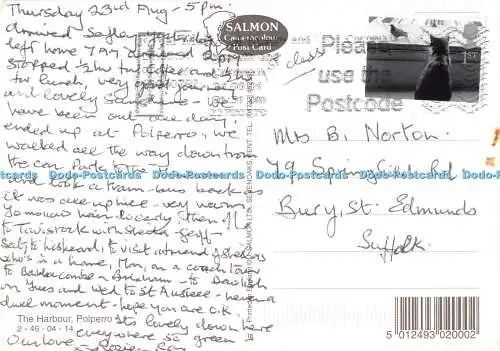 Thursday 23rd Aug - 5pm.
arrived safely yesterday
left home 7 am arrived 2pm
stopped 1/2 hr for coffee and
for lunch, very good journey
and lovely Sunshine - We
have been out all day,
ended up at Polperro, we
walked all the way down from
the car Park to the
and took a tram-bus back as
it was all up hill - very warm
Tomorrow hair-do early, then off
to Tavistock with Sheila Geoff -
Sat, to Liskeard, to visit a friend of Sheilas
who's in a home, Mon, on a coach tour
to Babbacombe - Brixham - to Dawlish
on Tues and Wed to St Austell - never a
dull moment - hope you are O.K.
Its lovely down here
everywhere so green
Our love
The Harbour, Polperro
2-46-04-14
SALMON
Cameracolour
Post Card
1st class
Please
use the
Postcode
1ST
Mrs B. Norton.
79 Springfield Rd
Bury, St. Edmunds
Suffolk.
5 012493 020002
Dodo-Postcards Dodo-Postcards Dodo-Postcards Dodo-Postcards